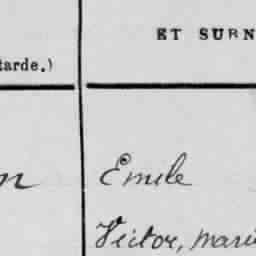 ET SURN
tarde.)
n Emile
Victor, marie